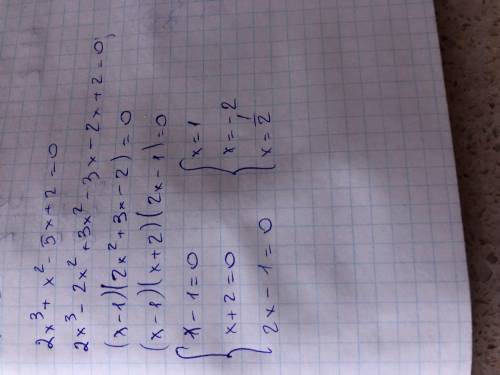 2x³ + x² - 5x + 2 = 0
2x³ - 2x² + 3x² - 3x - 2x + 2 = 0;
(x - 1)(2x² + 3x - 2) = 0
(x - 1)(x + 2)(2x - 1) = 0
{ x - 1 = 0 { x = 1
x + 2 = 0 x = -2
2x - 1 = 0 x = 1/2